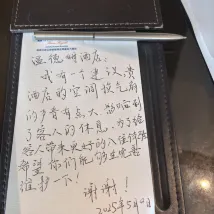 温德姆酒店:
我有一个建议,贵
酒店的空调换气扇
的声音有点大,影响到
了客人的休息,为了给
客人带来更好的入住体验
希望你们能够
维护一下!
谢谢!
2025年5月01日